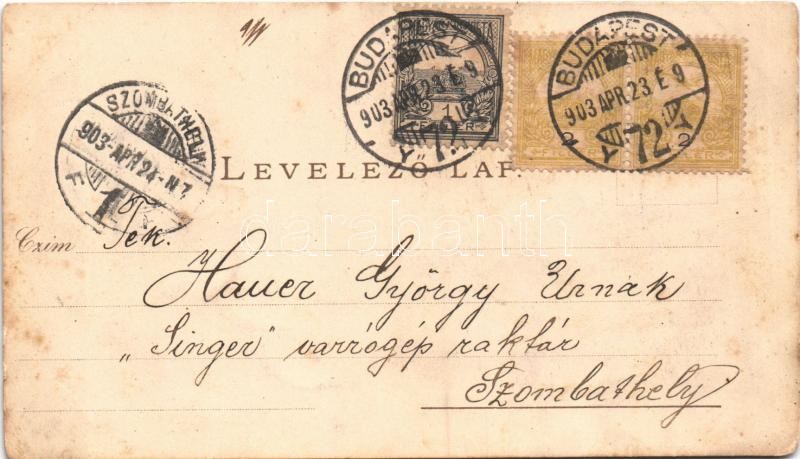 BUDAPEST
903 APR. 23. E 9
VII 72
BUDAPEST
903 APR. 23 E 9
VII 72
1
2
2
SZOMBATHELY
903-APR 24-N.7
F 1
LEVELEZŐ-LAP.
Czim
Tek.
Hauer György Urnak
„Singer" varrógép raktár
Szombathely
darabanth